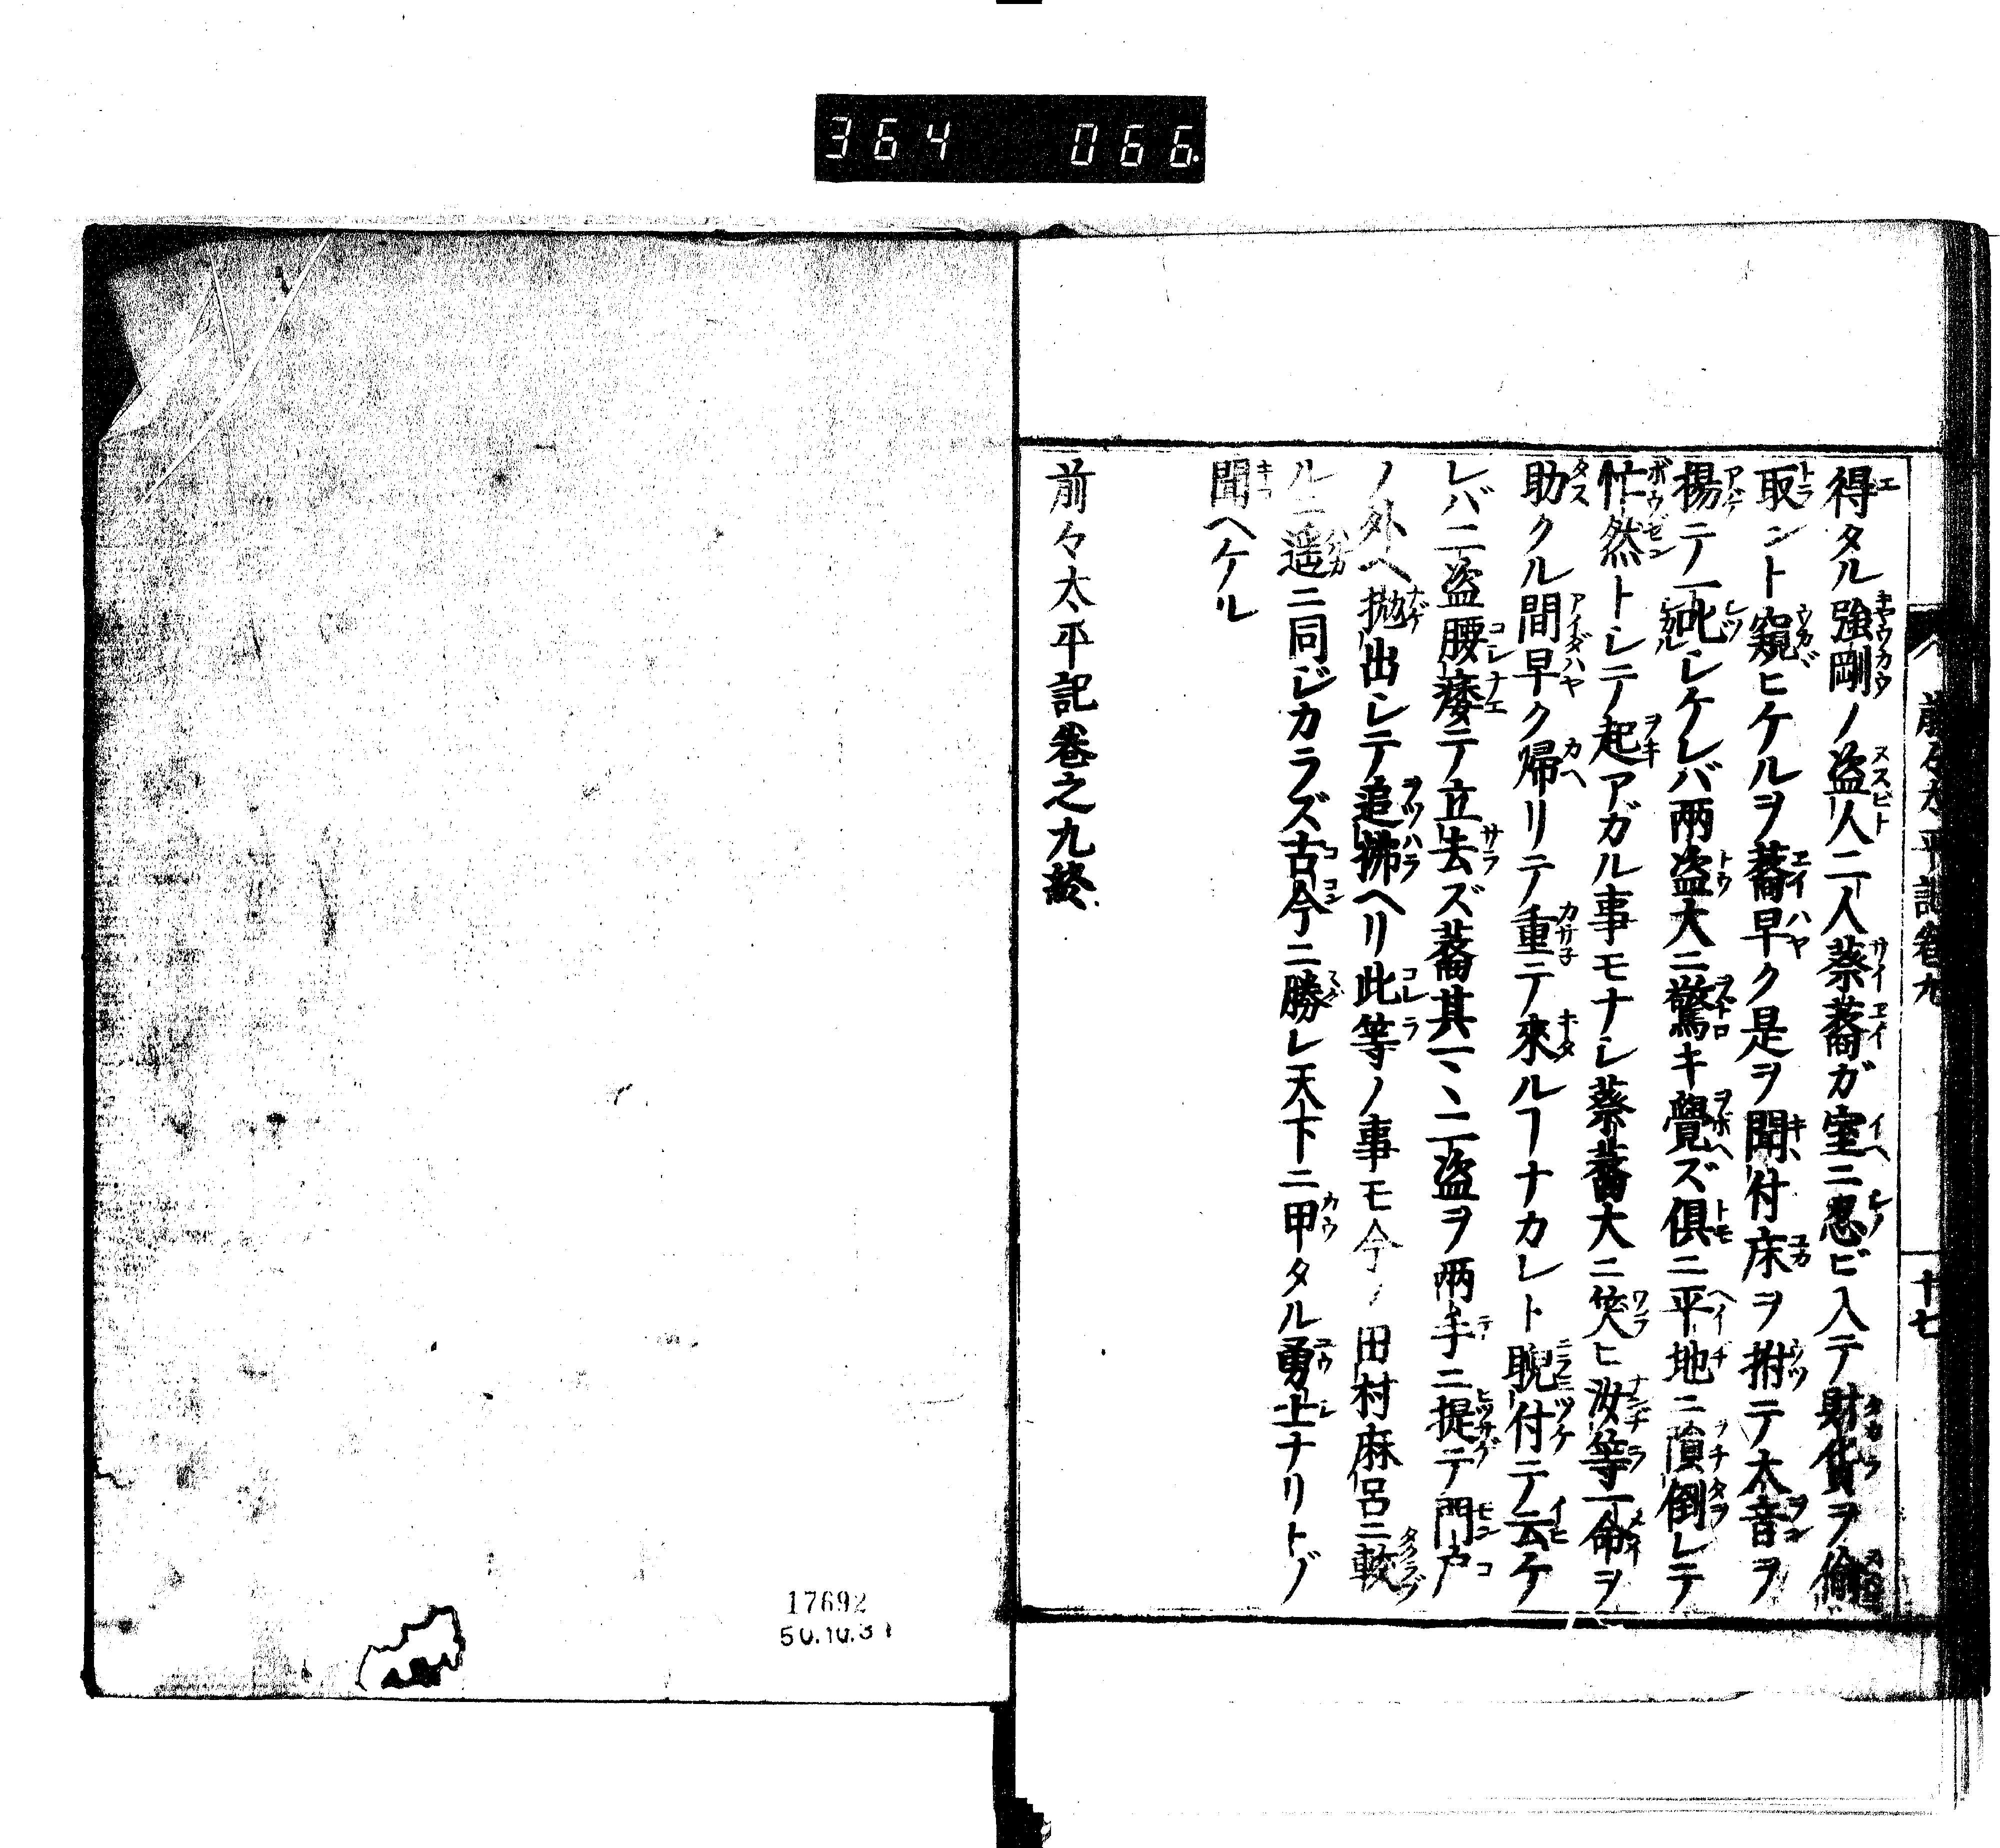 364 066
前々太平記巻九
十七
得タル強剛ノ盗人二人蔡裔ガ室ニ忍ビ入テ財貨ヲ偸
取ント窺ヒケルヲ裔早ク是ヲ聞付床ヲ拊テ大音ヲ
揚テ一叱シケレバ両盗大ニ驚キ覺ズ倶ニ平地ニ隕倒レテ
忙然トシテ起アガル事モナシ蔡裔大ニ笑ヒ汝等一命ヲ
助クル間早ク帰リテ重テ來ルヿナカレト睨付テ云ケ
レバ二盗腰痿テ立去ズ裔其一二盗ヲ両手ニ提テ門戸
ノ外ヘ抛出シテ追拂ヘリ此等ノ事モ今ノ田村麻呂ニ較
ルニ遥ニ同ジカラズ古今ニ勝レ天下ニ甲タル勇士ナリトゾ
聞ヘケル
前々太平記巻之九終
17692
50.10.31